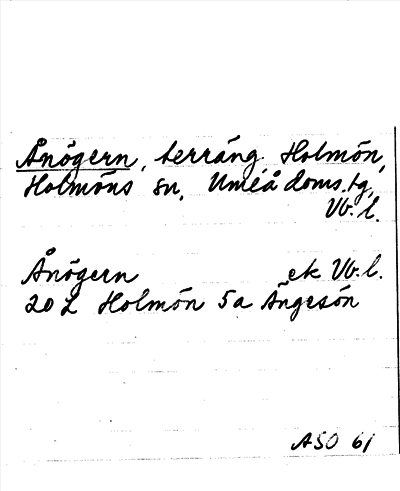 Ånögern, terräng. Holmön,
Holmöns sn, Umeå doms.tg,
Vb. l.
Ånögern ek Vb. l.
20 L Holmön 5a Ängesön
ASO 61